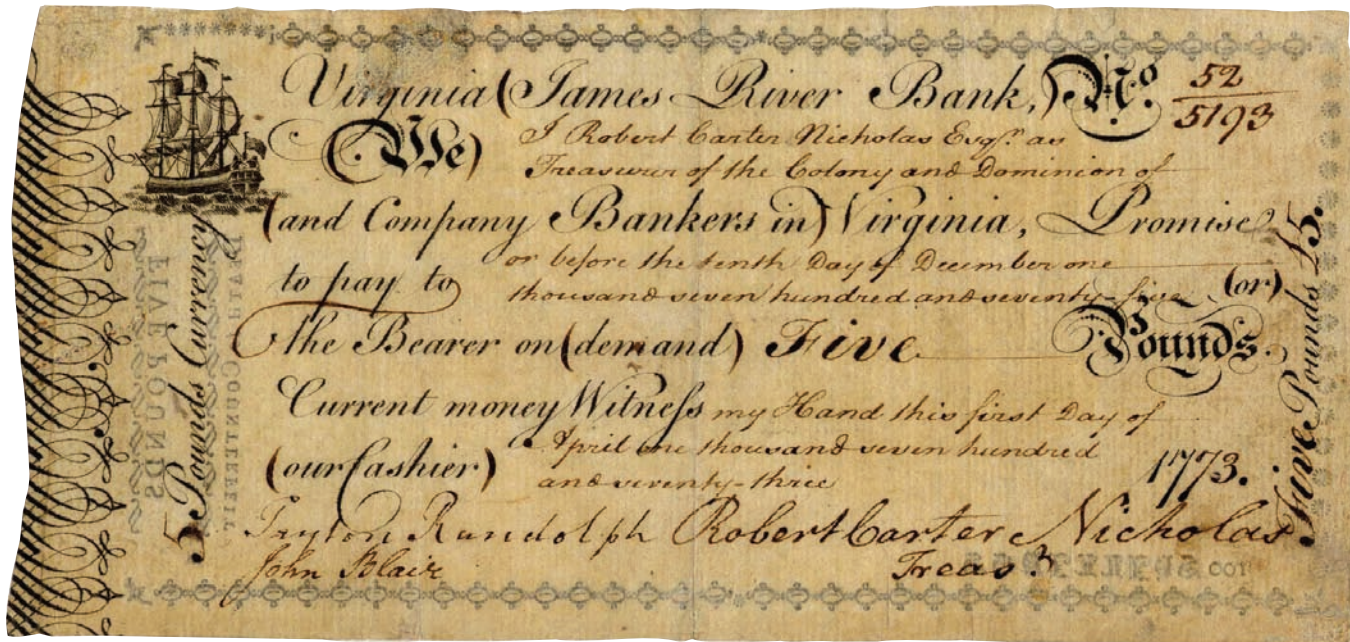 Virginia (James River Bank,) No. 52
5193
(We) I Robert Carter Nicholas Esqr. as
Treasurer of the Colony and Dominion of
(and Company Bankers in) Virginia, Promise
to pay to or before the tenth Day of December one
thousand seven hundred and seventy-five (or)
the Bearer on (demand) Five Pounds.
Current money Witneſs my Hand this first Day of
(our Cashier) April one thousand seven hundred
and seventy-three 1773.
Peyton Randolph Robert Carter Nicholas
John Blair Treasr.
5 Pounds Currency
Five Pounds £5.
FIVE POUNDS
DEATH COUNTERFEIT
TOO